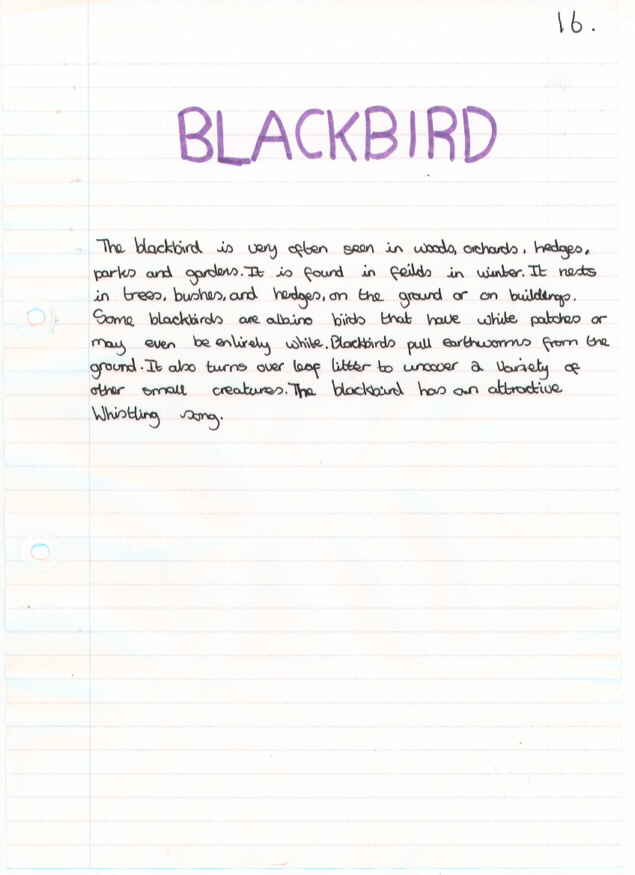 16.
BLACKBIRD
The blackbird is very often seen in woods, orchards, hedges,
parks and gardens. It is found in feilds in winter. It nests
in trees, bushes, and hedges, on the ground or on buildings.
Some blackbirds are albino birds that have white patches or
may even be entirely white. Blackbirds pull earthworms from the
ground. It also turns over leaf litter to uncover a variety of
other small creatures. The blackbird has an attractive
Whistling song.